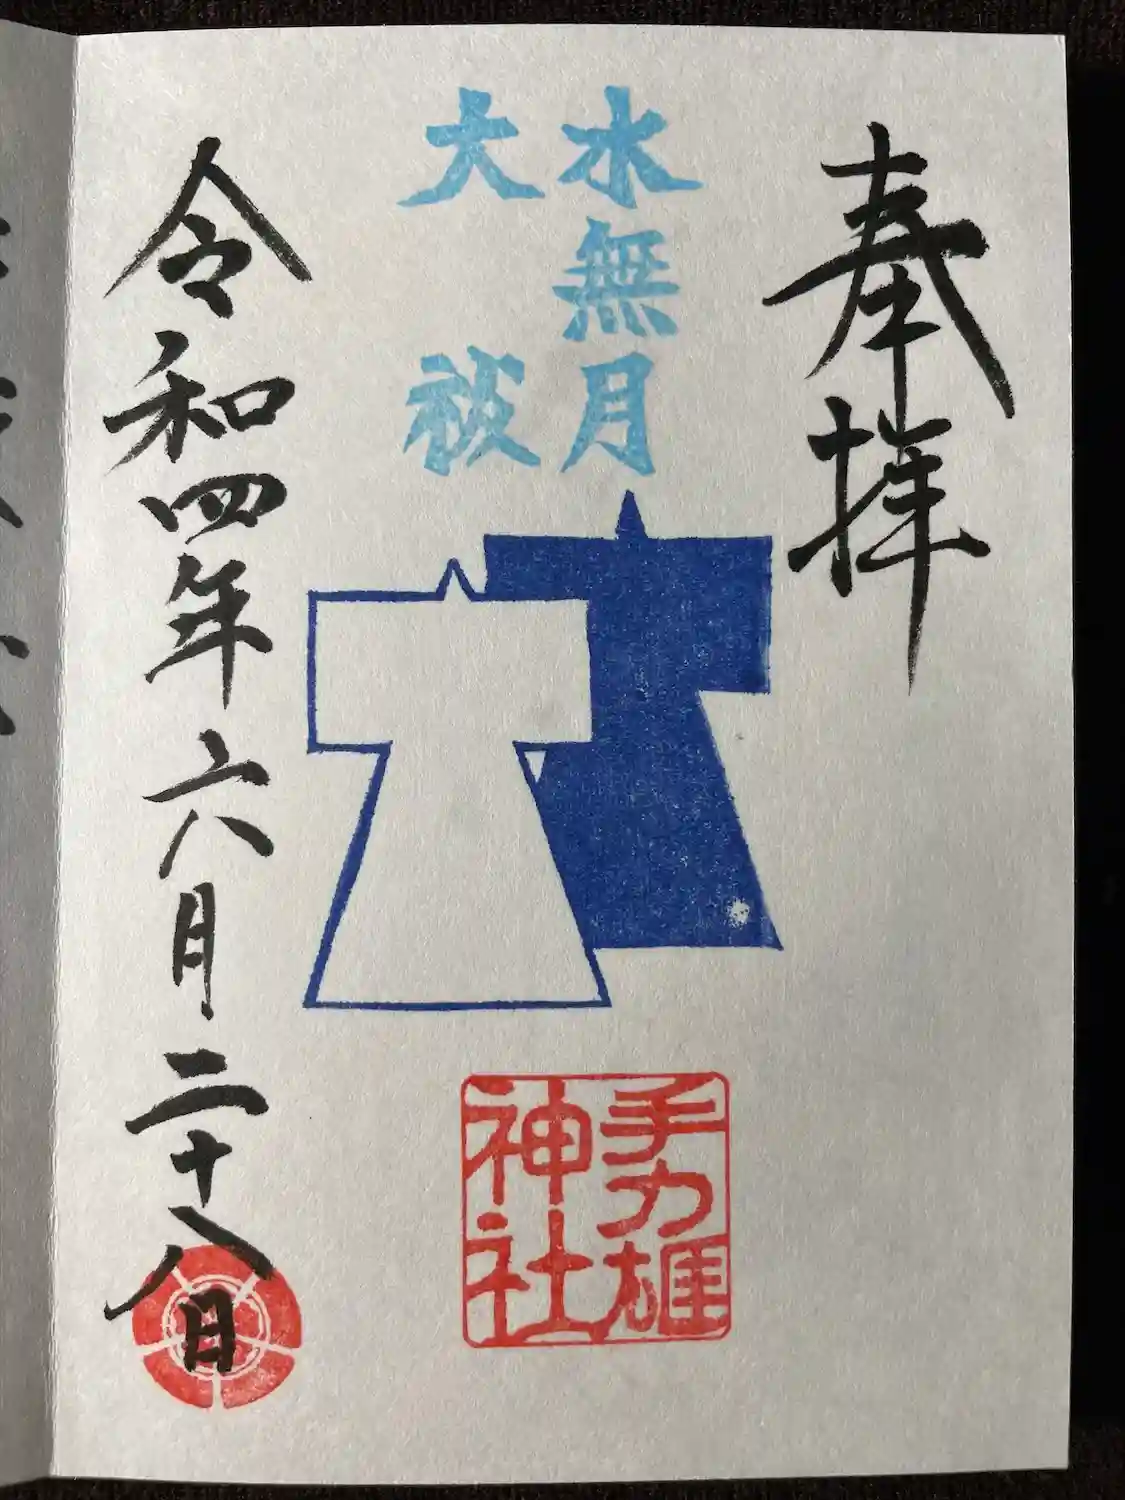 奉拝
水無月
大祓
手力雄
神社
令和四年六月二十八日